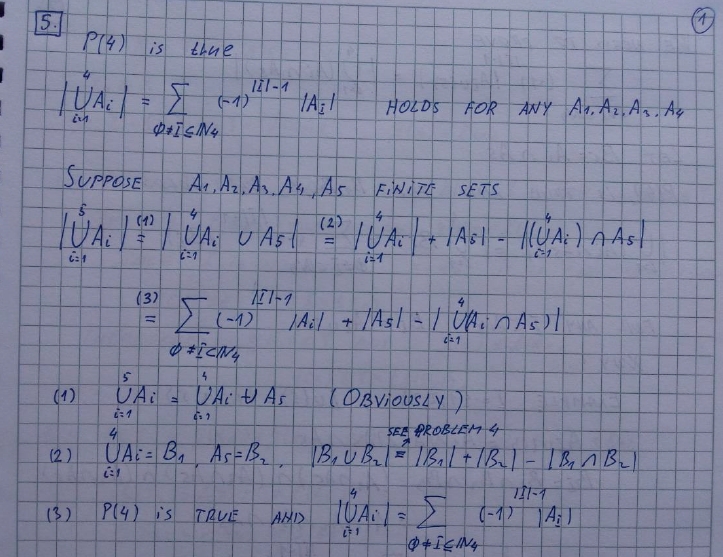 5. 1
P(4) is true
|⋃_{i=1}^{4} Ai| = ∑_{∅≠I⊆ℕ4} (-1)^{|I|-1} |A_I| HOLDS FOR ANY A1, A2, A3, A4
SUPPOSE A1, A2, A3, A4, A5 FINITE SETS
|⋃_{i=1}^{5} Ai| (1)= |⋃_{i=1}^{4} Ai ∪ A5| (2)= |⋃_{i=1}^{4} Ai| + |A5| - |(⋃_{i=1}^{4} Ai) ∩ A5|
(3)= ∑_{∅≠I⊆ℕ4} (-1)^{|I|-1} |Ai| + |A5| - |⋃_{i=1}^{4} (Ai ∩ A5)|
(1) ⋃_{i=1}^{5} Ai = ⋃_{i=1}^{4} Ai ∪ A5 (OBVIOUSLY)
SEE PROBLEM 4
(2) ⋃_{i=1}^{4} Ai = B1, A5 = B2, |B1 ∪ B2| = |B1| + |B2| - |B1 ∩ B2|
(3) P(4) IS TRUE AND |⋃_{i=1}^{4} Ai| = ∑_{∅≠I⊆ℕ4} (-1)^{|I|-1} |A_I|